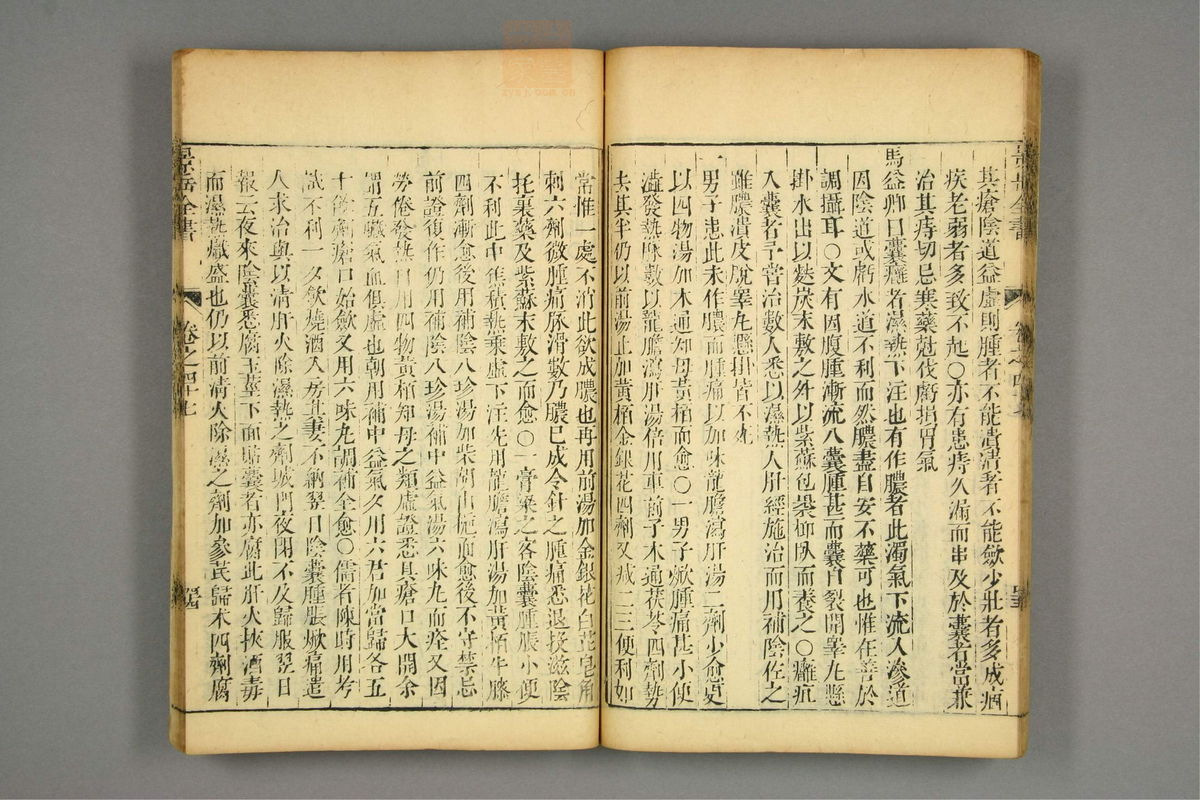 其瘡陰道益虛則腫者不能潰潰者不能斂少壯者多成痼
疾老弱者多致不起○亦有患痔久漏而串及於囊者當兼
治其痔切忌寒藥尅伐虧損胃氣
馬益卿曰囊癰者濕熱下注也有作膿者此濁氣下流入滲道
因陰道或虧水道不利而然膿盡自安不藥可也惟在善於
調攝耳○又有因腹腫漸流入囊腫甚而囊自裂開睾丸懸
掛水出以麩炭末敷之外以紫蘇包裹仰臥而養之○癰疽
入囊者予嘗治數人悉以濕熱入肝經施治而用補陰佐之
雖膿潰皮脫睾丸懸掛皆不死
一男子患此未作膿而腫痛以加味龍膽瀉肝湯二劑少愈更
以四物湯加木通知母黃栢而愈○一男子焮腫痛甚小便
澁發熱脉數以龍膽瀉肝湯倍用車前子木通茯苓四劑勢
去其半仍以前湯止加黃栢金銀花四劑又減二三便利如
常惟一處不消此欲成膿也再用前湯加金銀花白芷皂角
刺六劑微腫痛脉滑數乃膿已成令針之腫痛悉退投滋陰
托裏藥及紫蘇末敷之而愈○一膏粱之客陰囊腫脹小便
不利此中焦積熱乘虛下注先用龍膽瀉肝湯加黃栢牛膝
四劑漸愈後用補陰八珍湯加柴胡山梔而愈後不守禁忌
前證復作仍用補陰八珍湯補中益氣湯六味丸而痊又因
勞倦發熱自用四物黃栢知母之類虛證悉具瘡口大開余
謂五臟氣血俱虛也朝用補中益氣夕用六君加當歸各五
十餘劑瘡口始斂又用六味丸調補全愈○儒者陳時用考
試不利一夕飲燒酒入房其妻不納翌日陰囊腫脹焮痛遣
人求治與以清肝火除濕熱之劑城門夜閉不及歸服翌日
報云夜來陰囊悉腐玉莖下面貼囊者亦腐此肝火挾酒毒
而濕熱熾盛也仍以前清火除濕之劑加參芪歸术四劑腐
景岳全書
卷之四十七
景岳全書
卷之四十七